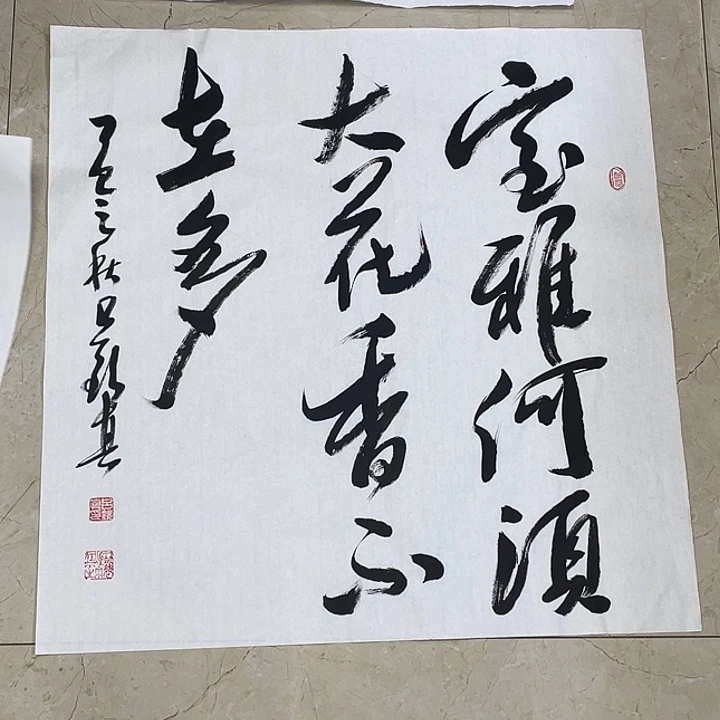 室雅何須
大花香不
在多
乙巳之秋